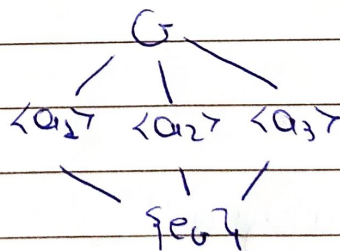 G
<a₁> <a₂> <a₃>
{e_G}